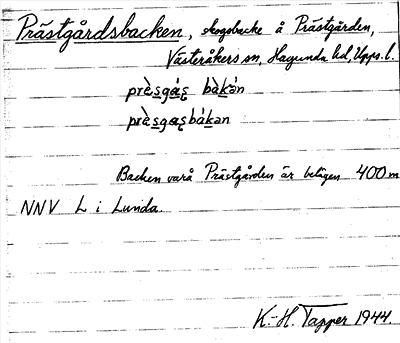 Prästgårdsbacken, skogsbacke å Prästgården,
Västeråkers sn, Hagunda hd, Upps. l.
prɛ̀sgạ́ṣ bàkán
prɛ̀sgạṣbákan
Backen varå Prästgården är belägen 400 m
NNV L i Lunda.
K.-H. Tapper 1944.